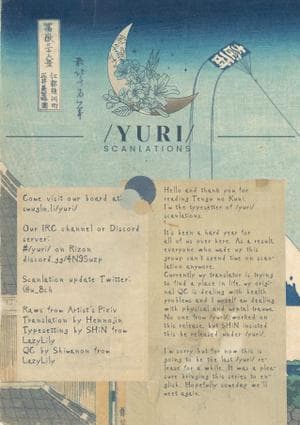 /YURI/
SCANLATIONS
Come visit our board at:
smuglo.li/yuri/
Our IRC channel or Discord
server:
#/yuri/ on Rizon
discord.gg/4N95uzp
Scanlation update Twitter:
@u_8ch
Raws from Artist's Pixiv
Translation by Hennojin
Typesetting by SHiN from
LazyLily
QC by Shiwanon from
LazyLily
Hello and thank you for
reading Tengu no Kuni.
I'm the typesetter of /yuri/
scanlations.
It's been a hard year for
all of us over here. As a result
everyone who made up this
group can't spend time on scan-
lation anymore.
Currently my translator is trying
to find a place in life, my origi-
nal QC is dealing with health
problems and I myself am dealing
with physical and mental trauma.
No one from /yuri/ worked on
this release, but SHiN insisted
this be released under /yuri/.
I'm sorry but for now this is
going to be the last /yuri/ re-
lease for a while. It was a plea-
sure bringing this series to en-
glish. Hopefully someday we'll
meet again.